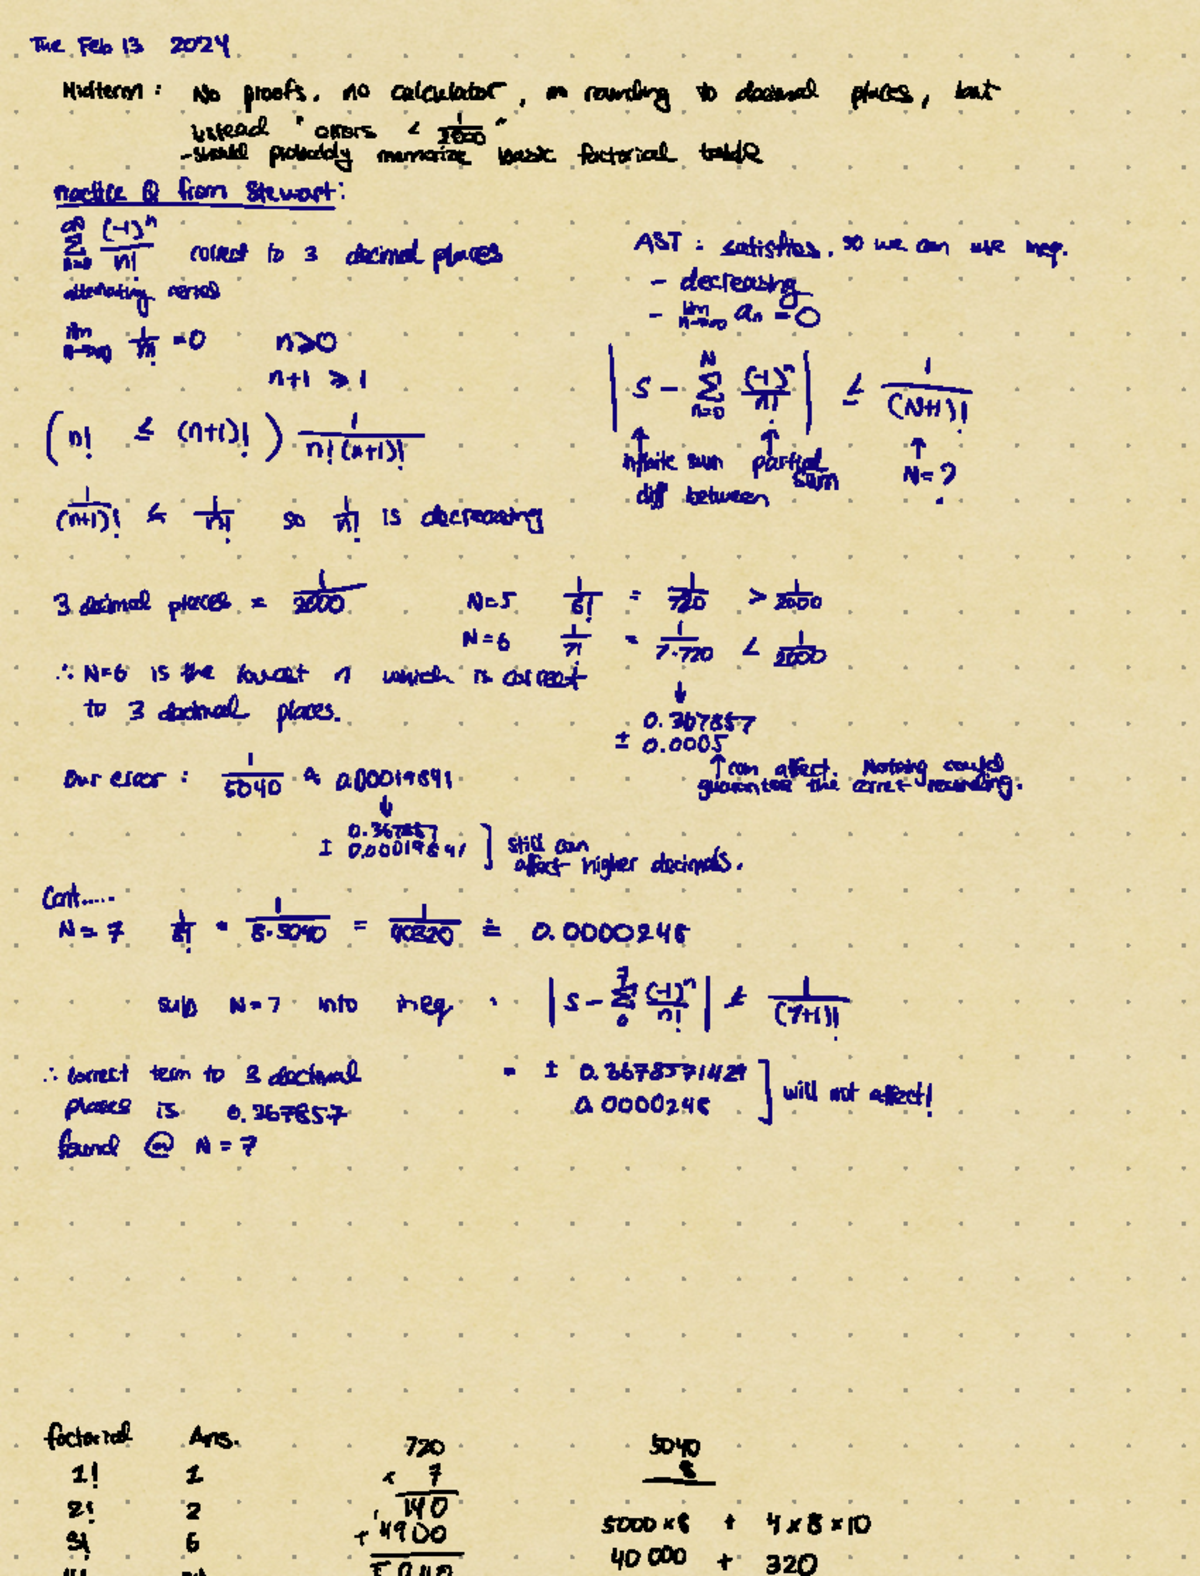 Tue Feb 13 2024
Midterm : No proofs, no calculator, no rounding to decimal places, but
instead "errors < 1/2000"
- should probably memorize basic factorial table
Practice Q from Stewart:
∞ Σ n=0 (-1)^n / n! correct to 3 decimal places
alternating series
lim n→∞ 1/n! = 0 n ≥ 0
n+1 ≥ 1
( n! ≤ (n+1)! ) 1 / n!(n+1)!
1/(n+1)! ≤ 1/n! so 1/n! is decreasing
AST : satisfies, so we can use ineq.
- decreasing
- lim n→∞ an = 0
| S - N Σ n=0 (-1)^n / n! | ≤ 1 / (N+1)!
↑ ↑ ↑
infinite sum partial sum N = ?
diff between
3 decimal places = 1/2000
N=5 1/6! = 1/720 > 1/2000
N=6 1/7! = 1/7·720 < 1/2000
∴ N=6 is the lowest n which is correct
to 3 decimal places.
↓
0.367857
± 0.0005
↑ can affect. Nothing could
guarantee the correct rounding.
Our error : 1/5040 ≈ 0.00019841
↓
0.367857
± 0.00019841 ] still can
affect higher decimals.
Cont.....
N = 7 1/8! = 1/8·5040 = 1/40320 ≐ 0.0000248
sub N=7 into ineq : | S - 7 Σ 0 (-1)^n / n! | ≤ 1 / (7+1)!
= ± 0.3678571429
0.0000248 ] will not affect!
∴ correct term to 3 decimal
places is 0.367857
found @ N = 7
factorial Ans.
1! 1
2! 2
3! 6
720
x 7
140
+ 4900
5040
5040
8
5000 x 8 + 4 x 8 x 10
40 000 + 320